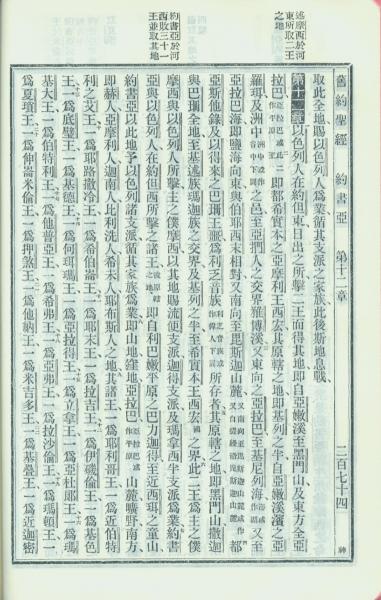 述摩西於河東所取二王之地
約書亞於河西敗三十一王並取其地
舊約聖經 約書亞 第十二章 二百七十四
取此全地賜以色列人為業循其支派之家族此後斯地息戰
第十二章 以色列人在約但東日出之所擊二王而得其地即自亞嫩溪至黑門山及東方全亞
拉巴 即都希實本之亞摩利王西宏其原轄之地即基列之半自亞嫩溪濱之亞
羅珥及洲中 之邑至亞捫人之交界雅博溪又東向之亞拉巴至基尼列海 又至
亞拉巴海即鹽海向東與伯耶西末相對又南向至毘斯迦山麓 都
亞斯他錄及以得來之巴珊王噩為利乏音族 所存者其原轄之地即黑門山撒迦
與巴珊全地至基述族瑪迦族之交界及基列之半至希實本王西宏 之界此二王為主之僕
摩西與以色列人所擊主之僕摩西以其地賜流便支派迦得支派及瑪拿西半支派為業約書
亞與以色列人在約但西所擊之諸王 即自利巴嫩平原之巴力迦得至近西珥之童山
約書亞以此地予以色列諸支派循其家族為業即山地窪地亞拉巴 山麓曠野南方
即赫人亞摩利人迦南人比利洗人希未人耶布斯人之地其諸王一為耶利哥王一為近伯特
利之艾王一為耶路撒冷王一為希伯崙王一為耶末王一為拉吉王一為伊磯倫王一為基色
王一為底璧王一為基德王一為何珥瑪王一為亞拉得王一為立拿王一為亞杜蘭王一為瑪
基大王一為伯特利王一為他普亞王一為希弗王一為亞弗王一為拉沙倫王一為瑪頓王一
為夏瑣王一為伸崙米倫王一為押煞王一為他納王一為米吉多王一為基疊王一為近迦密